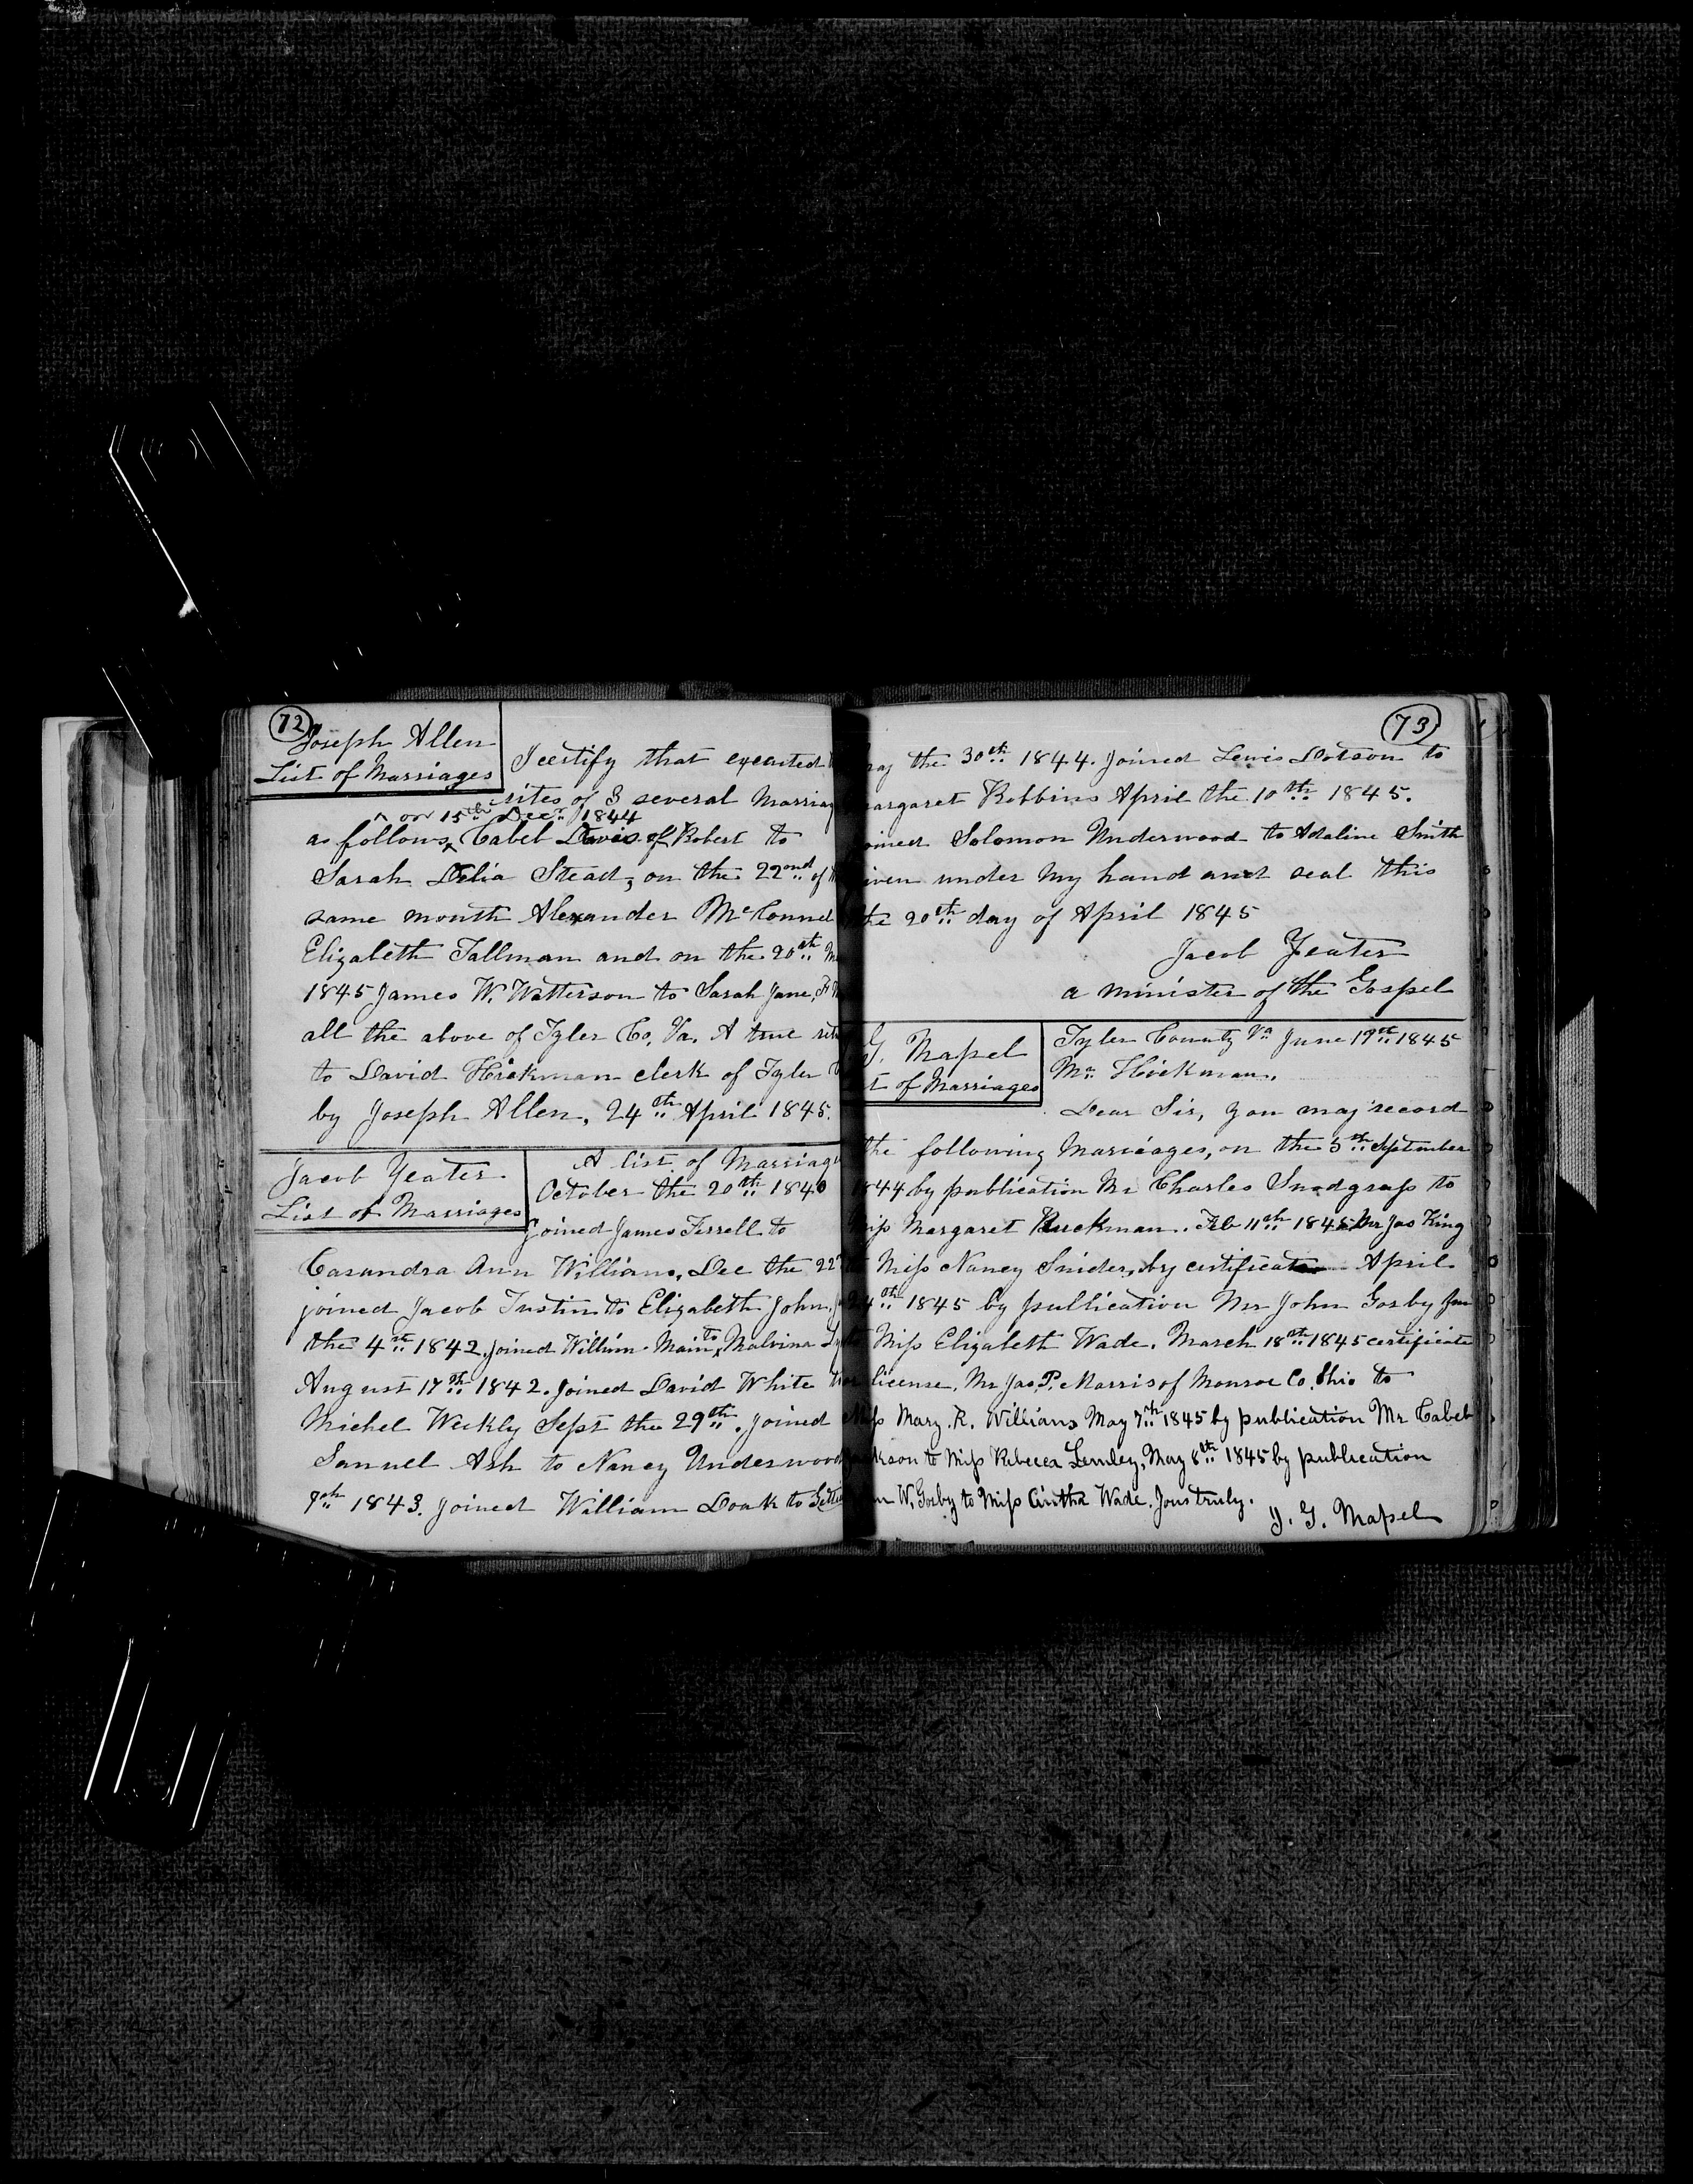 72
Joseph Allen
List of Marriages
I certify that executed
rites of 3 several Marriag
^ on 15th Decr 1844
as follows, Cabel Davis of Robert to
Sarah Delia Stead, on the 22nd of
same month Alexander McConnel
Elizabeth Tallman and on the 20th
1845 James W. Watterson to Sarah Jane,
all the above of Tyler Co, Va. A true
to David Hickman clerk of Tyler
by Joseph Allen, 24th April 1845.
Jacob Yeater
List of Marriages
A list of Marriag
October the 20th 1840
joined James Ferrell to
Casandra Ann Williams, Dec the 22
joined Jacob Tustin to Elizabeth John,
the 4th 1842. joined William Main to Malvina
August 17th 1842. joined David White
Michel Weekly Sept the 29th. joined
Samuel Ash to Nancy Underwood
7th 1843. joined William Doak to
73
the 30th 1844. joined Lewis Dotson to
argaret Robbins April the 10th 1845.
oined Solomon Underwood to Adaline Smith
iven under my hand and seal this
the 20th day of April 1845
Jacob Yeater
a minister of the Gospel
G. Mapel
t of Marriages
Tyler County Va June 19th 1845
Mr Hickman,
Dear Sir, you may record
the following Marriages, on the 5th September
1844 by publication Mr Charles Snodgrass to
iss Margaret Ruckman. Feb 11th 1845 Mr Jas King
Miss Nancy Snider, by certificate April
24th 1845 by publication Mr John Gorby Jun
Miss Elizabeth Wade. March 18th 1845 certificate
or license, Mr Jas. P. Morris of Monroe Co. Ohio to
Miss Mary. R. Williams May 7th 1845 by publication Mr Cabeb
kson to Miss Rebecca Lemley, May 8th 1845 by publication
W. Gorby to Miss Cintha Wade. Yours truly.
J. G. Mapel